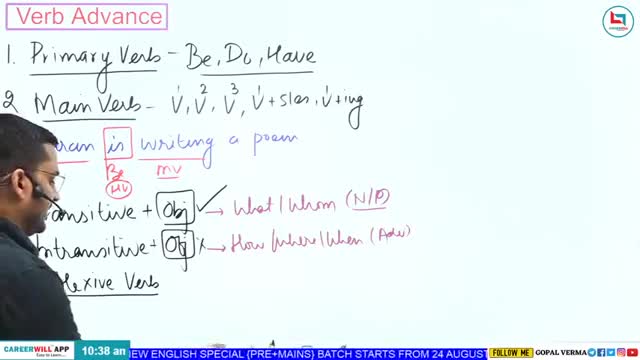 Verb Advance
1. Primary Verb - Be, Do, Have
2 Main Verb - V¹, V², V³, V¹+s/es, V¹+ing
is writing a poem
Be MV
HV
transitive + Obj ✓ → What/Whom (N/P)
Intransitive + Obj x → How/Where/When (Adv)
Verb
CAREERWILL
CAREERWILL APP
Easy to Learn...
10:38 am
NEW ENGLISH SPECIAL (PRE+MAINS) BATCH STARTS FROM 24 AUGUST
FOLLOW ME
GOPAL VERMA